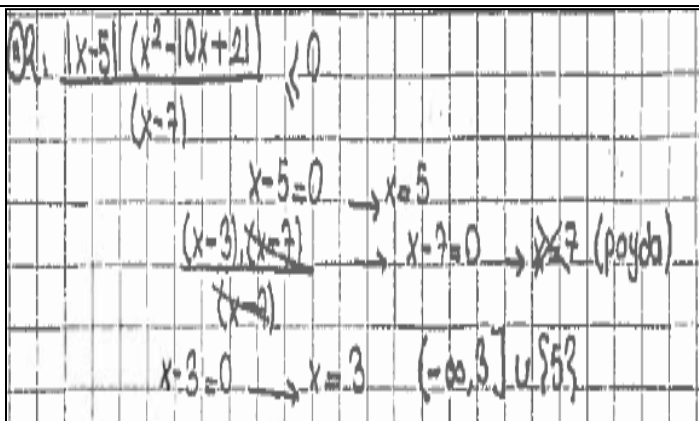 2. |x-5| (x²-10x+21) / (x-7) ≤ 0
x-5=0 → x=5
(x-3).(x-7) / (x-7) → x-7=0 → x=7 (payda)
x-3=0 → x=3 (-∞,3] ∪ {5}